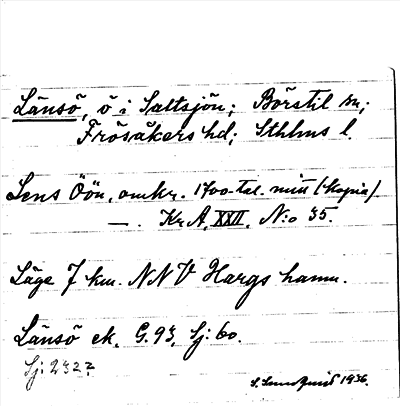 Länsö, ö i Saltsjön; Börstil sn;
Frösåkers hd; Sthlms l.
Lens Öön, omkr. 1700-tal. mitt (kopia)
— . Kr A, XXII, N:o 35.
Läge 7 km. NNV Hargs hamn.
Länsö ek. G. 93, Sj: 60.
Sj: 232?
1936.